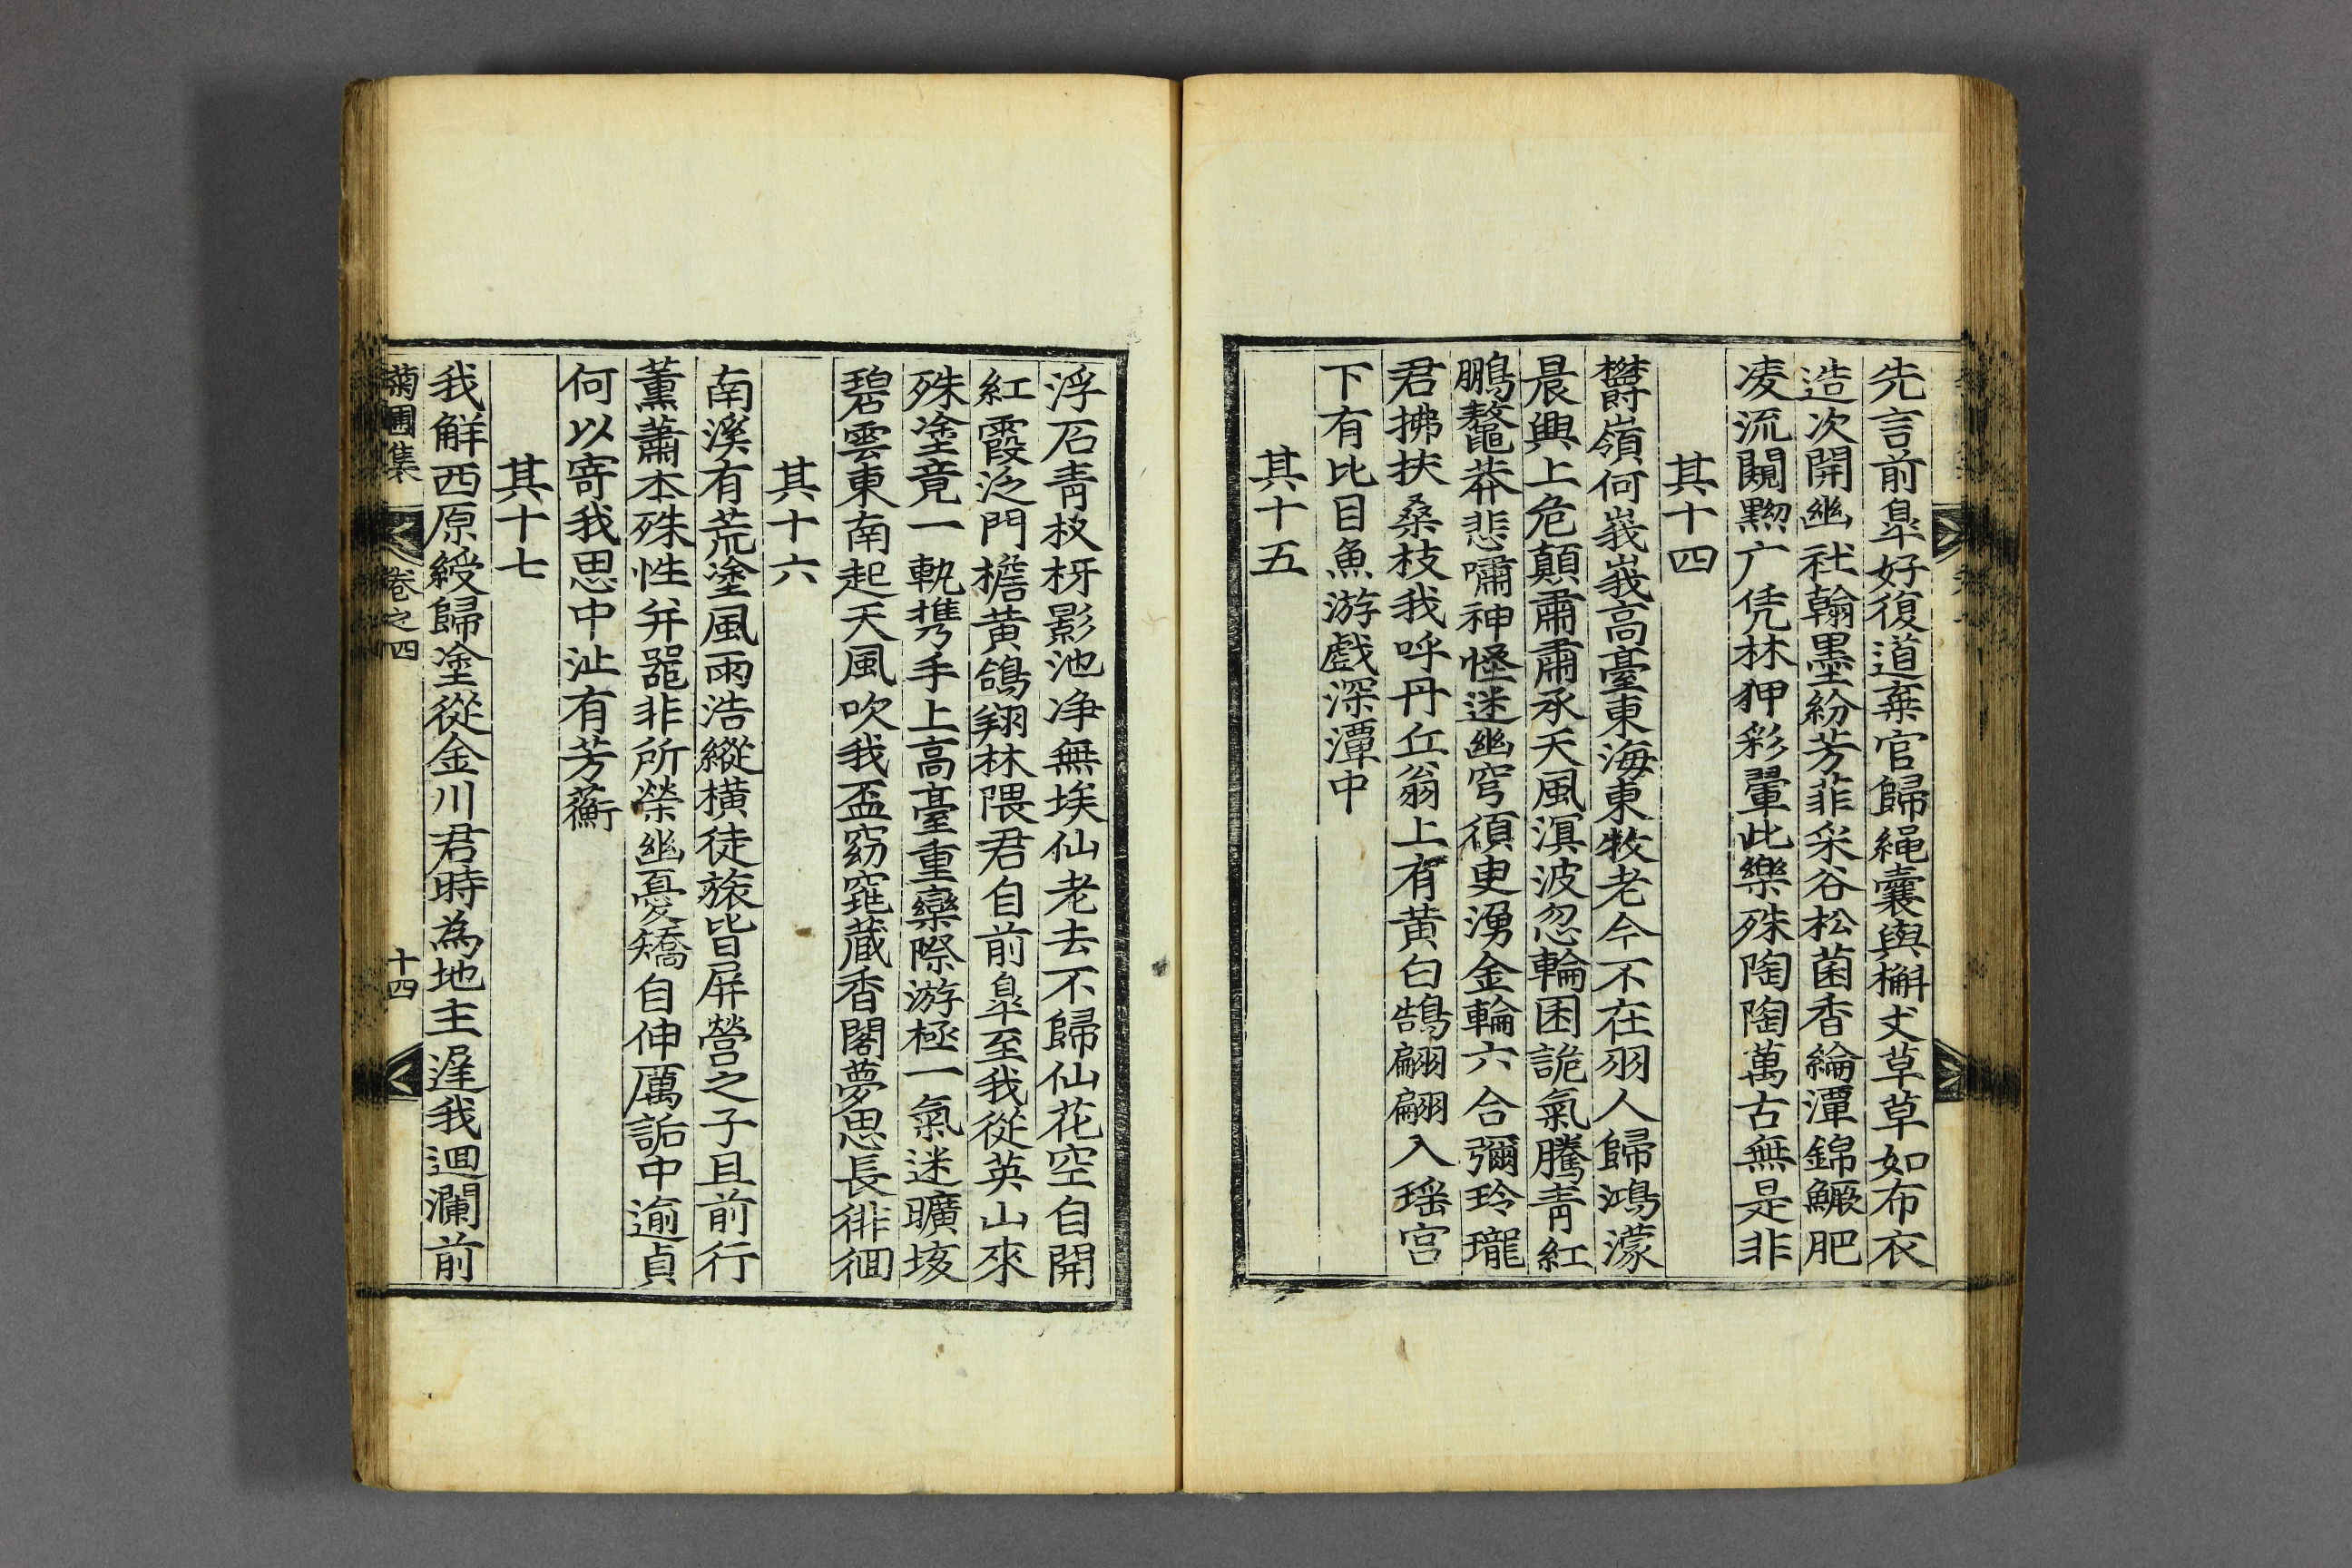 先言前皐好復道棄官歸繩囊與槲丈草草如布衣
造次開幽秇翰墨紛芳菲采谷松菌香綸潭錦鱖肥
凌流闚黝广凭林狎彩翬此樂殊陶陶萬古無是非
其十四
欝嶺何峩峩高臺東海東牧老今不在羽人歸鴻濛
晨興上危顛肅肅承天風溟波忽輪囷詭氣騰靑紅
鵬鼇莽悲嘯神怪迷幽穹須臾湧金輪六合彌玲瓏
君拂扶桑枝我呼丹丘翁上有黃白鵠翩翩入瑶宫
下有比目魚游戱深潭中
其十五
浮石靑杈枒影池净無埃仙老去不歸仙花空自開
紅霞泛門檐黃鴿翔林隈君自前皐至我從英山來
殊塗竟一軌攜手上高臺重巒際游極一氣迷曠垓
碧雲東南起天風吹我盃窈窕蔵香閣夢思長徘徊
其十六
南溪有荒塗風雨浩縱横徒旅皆屏營之子且前行
薰蕭本殊性弁罷非所榮幽憂矯自伸厲詬中逾貞
何以寄我思中沚有芳蘅
其十七
我解西原綬歸塗從金川君時為地主遅我迴瀾前
菊圃集 卷之四 十四